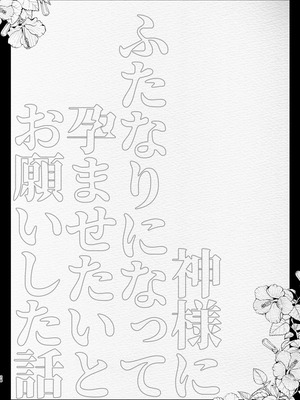 神様に
ふたなりになって
孕ませたいと
お願いした話